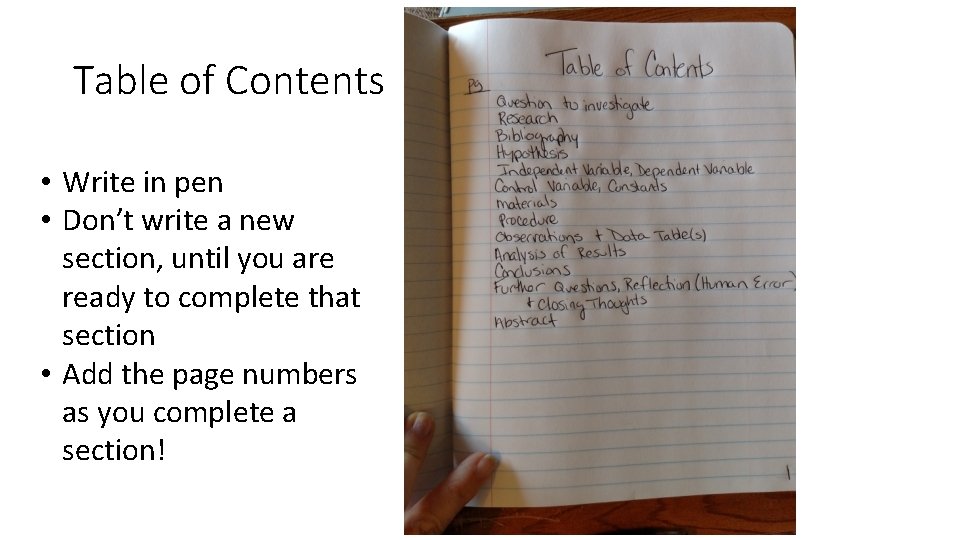 Table of Contents
• Write in pen
• Don’t write a new
section, until you are
ready to complete that
section
• Add the page numbers
as you complete a
section!
Table of Contents
pg
Question to investigate
Research
Bibliography
Hypothesis
Independent Variable, Dependent Variable
Control Variable, Constants
materials
Procedure
Observations + Data Table(s)
Analysis of Results
Conclusions
Further Questions, Reflection (Human Error)
+ Closing Thoughts
Abstract
1